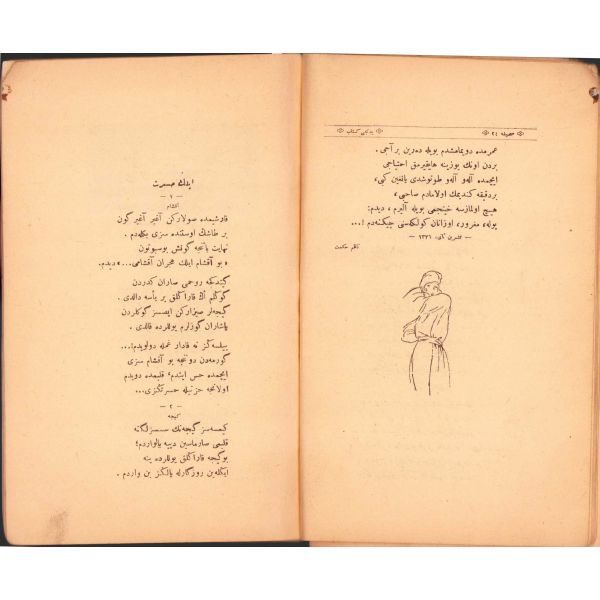 صحیفه ٢١
یدنجی کتاب
عمرمده دویمامشدم بویله دەرین بر آجی.
بردن اونك یوزینه هایقیرمق احتیاجی
ایچمده آلەو آلەو طوتوشدی یانغین کبی،
بردقیقه کندیمك اولامادم صاحبی،
هیچ اولمازسه خینجمی بویله آلیرم ، دیدم:
یوله، مغرور، اوزانان کولکه‌سنی چیکنه‌دم !...
تشرین ثانی: ١٣٣٦
ناظم حکمت
ایلك حسرت
— ١ —
آقشام
قارشیمده صولارکن آغیر آغیر گون
بر طاشڭ اوستنده سزی بکله‌دم .
نهایت باتنجه گونش بوسبوتون
« بو آقشام ایلك هجران آقشامی... » دیدم.
گیتدکجه روحمی صاران کدردن
گوکلم اڭ قاراڭلق بر یأسه دالدی .
گیجه‌لر صیزارکن ایصسز گوکلردن
یاشاران گوزلرم یوللرده قالدی .
بیلسه‌ڭز نه قادار غمله دولویدم!...
گورمه‌دن دونجه بو آقشام سزی
ایچمده حس ایتدم، قلبمده دویدم
اولانجه حزنیله حسرتڭزی .
— ٢ —
گیجه
کیمسه‌سز گیجه‌نك سسسزلگنه
قلبمی صارماسین دییه یالواردم؛
بوگیجه قاراڭلق یوللرده ینه
ایکله‌ین روزگارله یالڭز بن واردم .